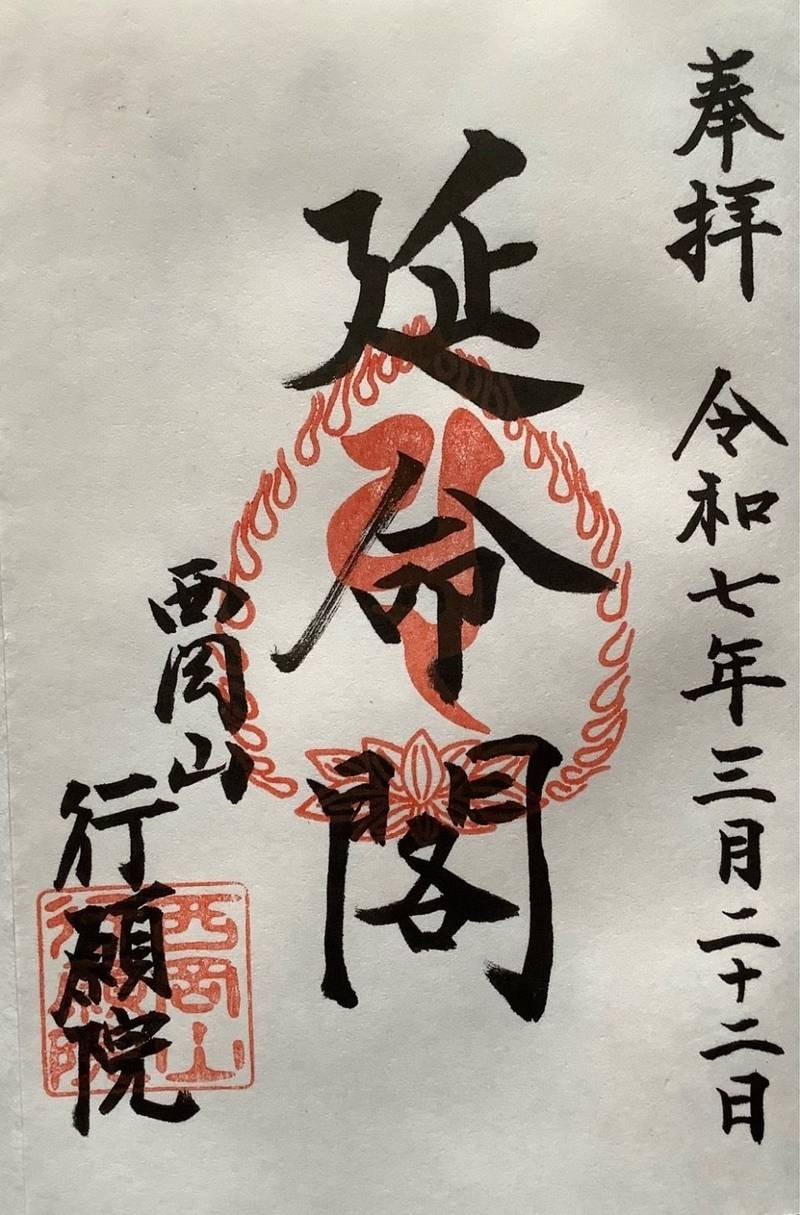 奉拝 令和七年三月二十二日
延命閣
西岡山
行願院
西岡山
行願院